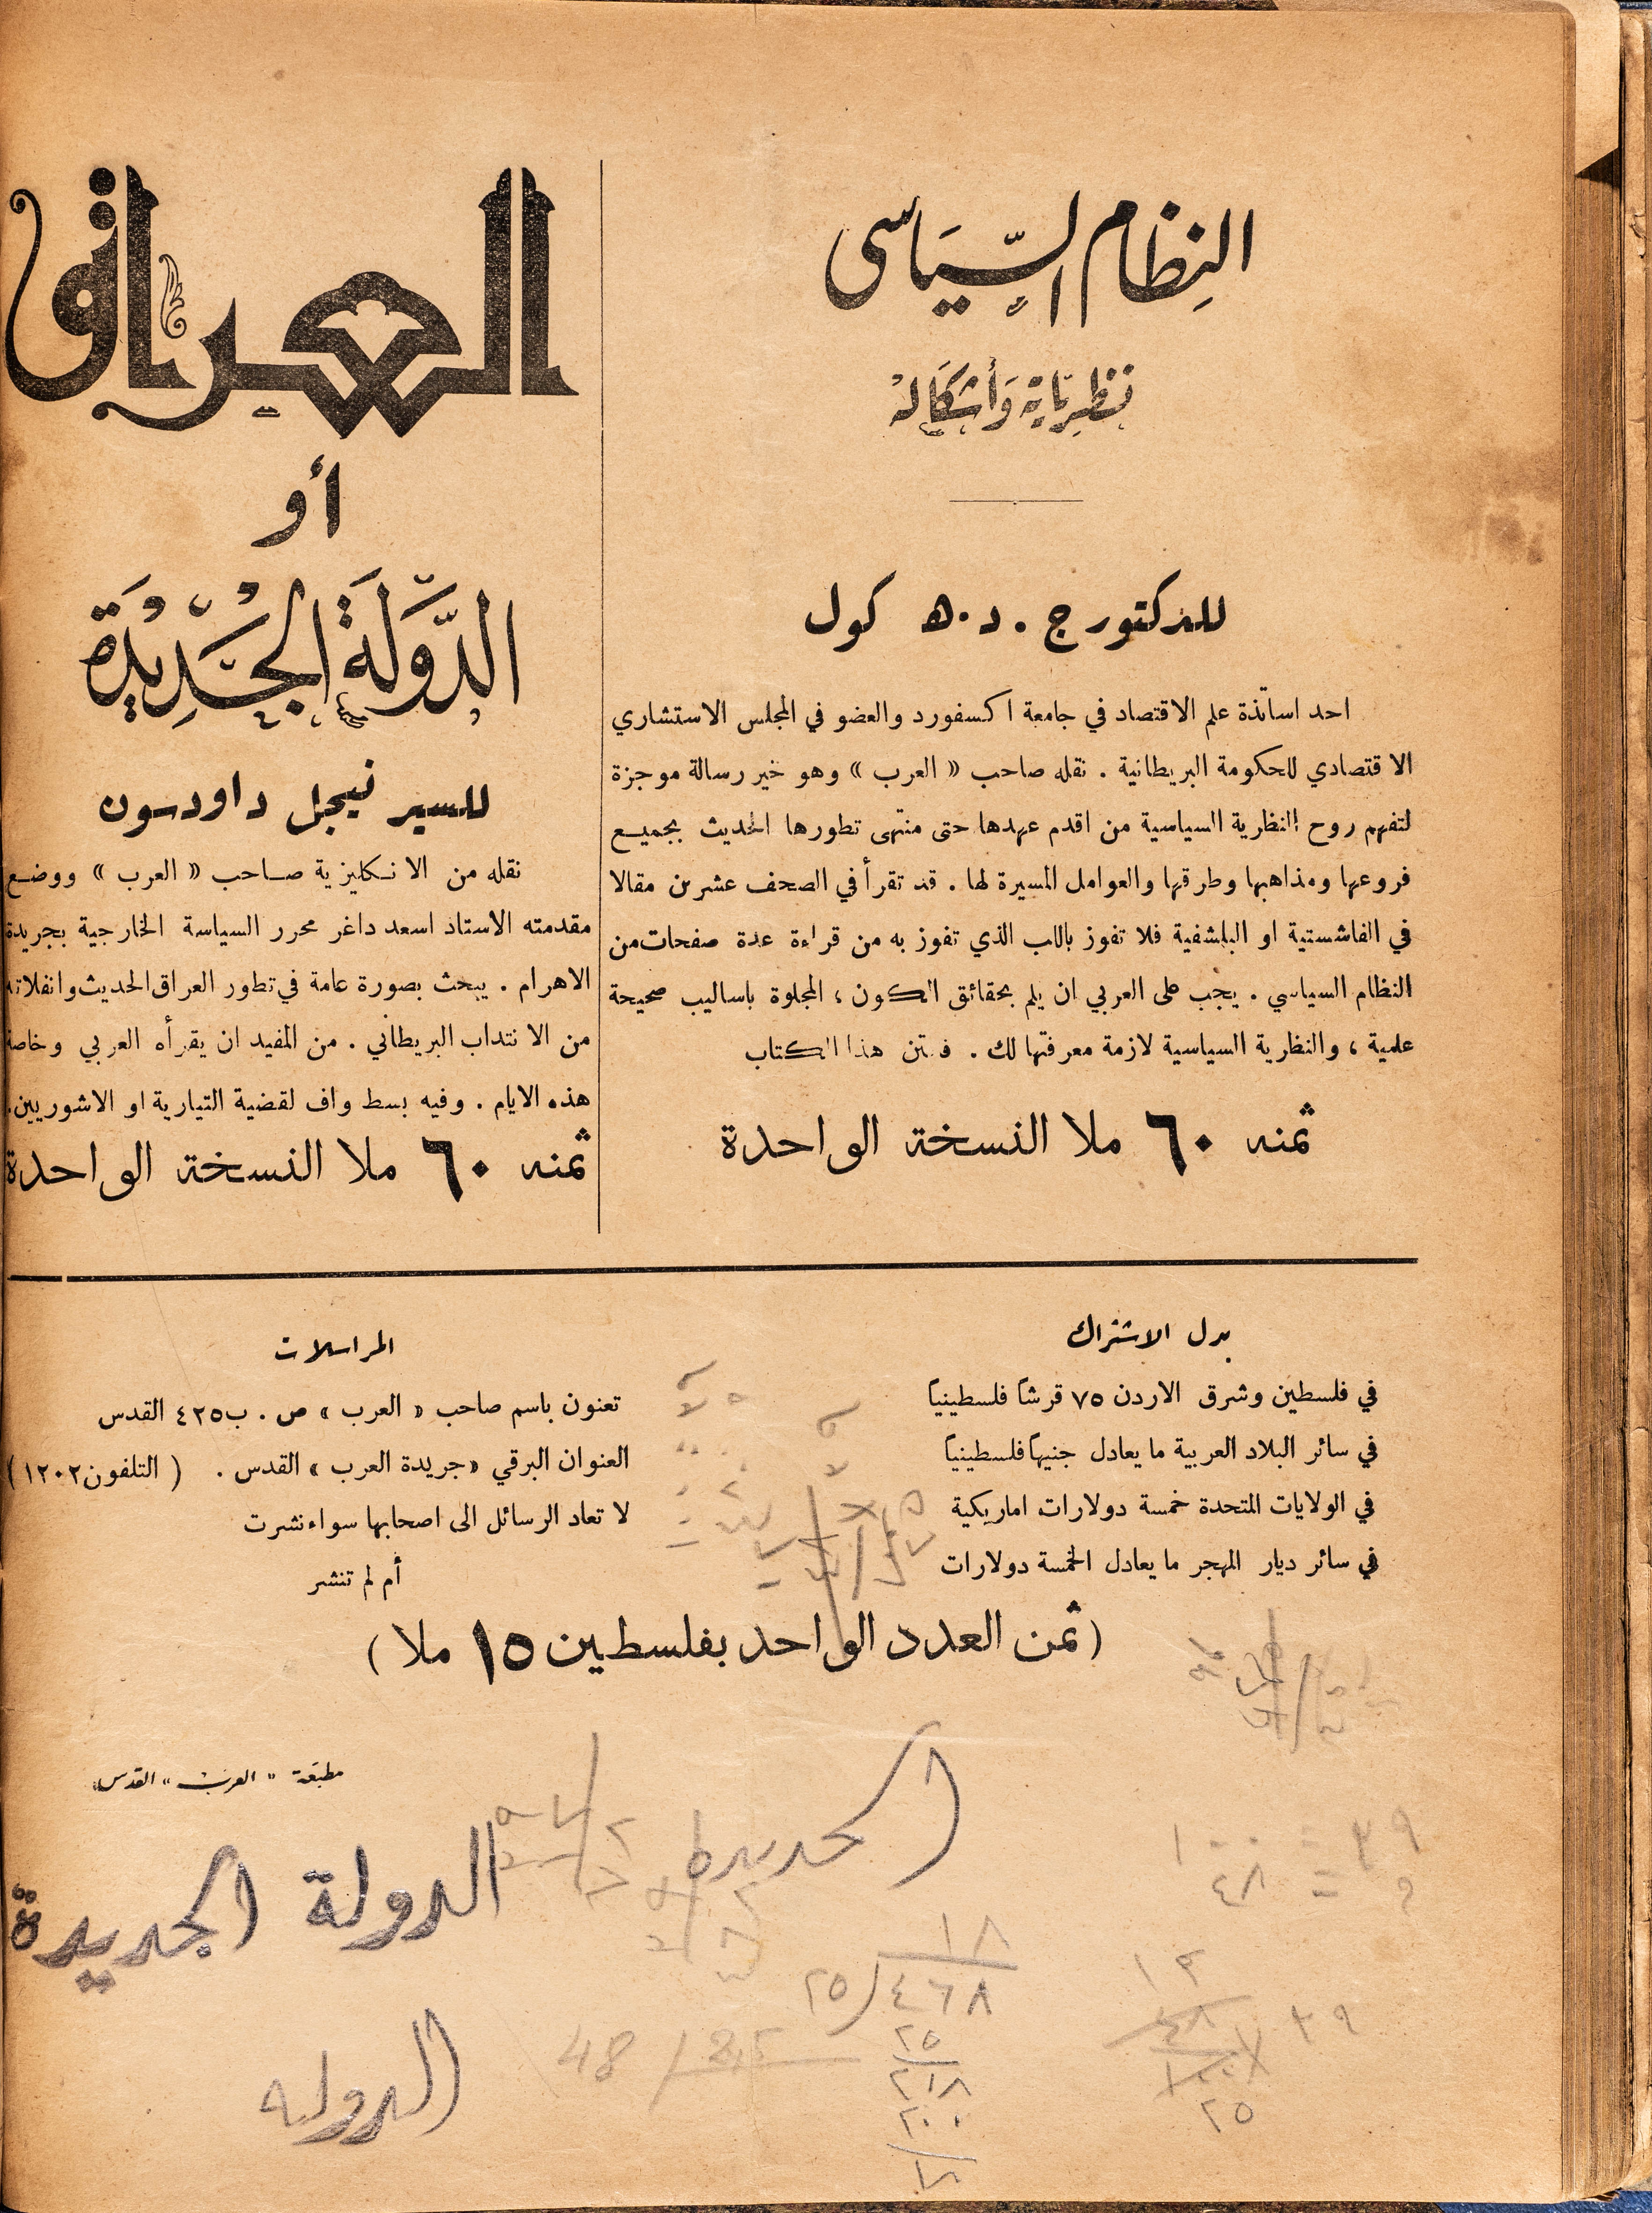 النظام السياسي
نظرياته وأشكاله
للدكتور ج . د . ه كول
احد اساتذة علم الاقتصاد في جامعة اكسفورد والعضو في المجلس الاستشاري
الاقتصادي للحكومة البريطانية . نقله صاحب « العرب » وهو خير رسالة موجزة
لتفهم روح النظرية السياسية من اقدم عهدها حتى منتهى تطورها الحديث بجميع
فروعها ومذاهبها وطرقها والعوامل المسيرة لها . قد تقرأ في الصحف عشرين مقالا
في الفاشستية او البلشفية فلا تفوز باللب الذي تفوز به من قراءة عدة صفحات من
النظام السياسي . يجب على العربي ان يلم بحقائق الكون ، المجلوة باساليب صحيحة
علمية ، والنظرية السياسية لازمة معرفتها لك . هذا الكتاب
ثمنه ٦٠ ملا النسخة الواحدة
العراق
أو
الدولة الجديدة
للسير نيجل داودسون
نقله من الانكليزية صاحب « العرب » ووضع
مقدمته الاستاذ اسعد داغر محرر السياسة الخارجية بجريدة
الاهرام . يبحث بصورة عامة في تطور العراق الحديث وانفلاته
من الانتداب البريطاني . من المفيد ان يقرأه العربي وخاصة
هذه الايام . وفيه بسط واف لقضية التيارية او الاشوريين.
ثمنه ٦٠ ملا النسخة الواحدة
بدل الاشتراك
في فلسطين وشرق الاردن ٧٥ قرشاً فلسطينياً
في سائر البلاد العربية ما يعادل جنيهاً فلسطينياً
في الولايات المتحدة خمسة دولارات اماريكية
في سائر ديار المهجر ما يعادل الخمسة دولارات
المراسلات
تعنون باسم صاحب « العرب » ص . ب ٤٢٥ القدس
العنوان البرقي « جريدة العرب » القدس . ( التلفون ١٢٠٢ )
لا تعاد الرسائل الى اصحابها سواء نشرت
أم لم تنشر
( ثمن العدد الواحد بفلسطين ١٥ ملا )
مطبعة « العرب » القدس
الدولة الجديدة
الدوله
١٨
٢٥ ٤٦٨
٢٥
٢١٨
٢٠٠
١٨
48
٢٥